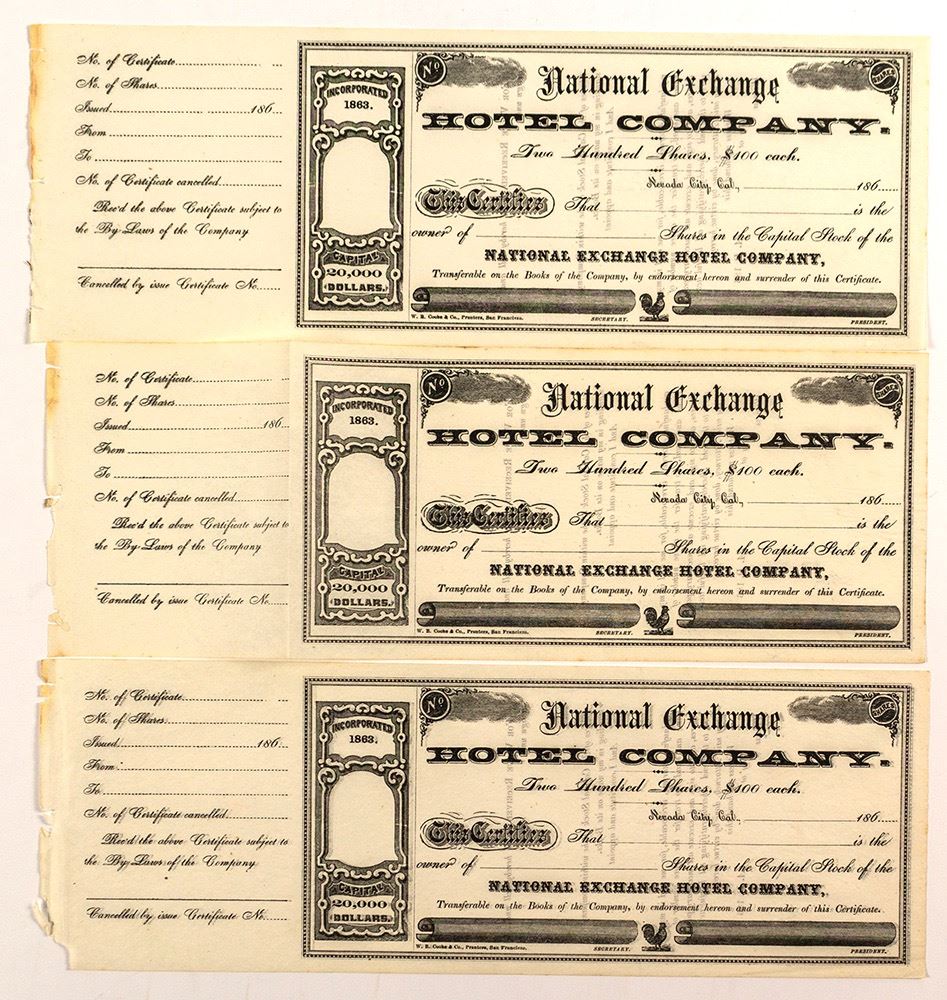 No. of Certificate
No. of Shares
Issued 186
From
To
No. of Certificate cancelled
Rec'd the above Certificate subject to
the By-Laws of the Company
Cancelled by issue Certificate No.
INCORPORATED
1863.
CAPITAL
20,000
DOLLARS.
No
SHARES
National Exchange
HOTEL COMPANY.
Two Hundred Shares, $100 each.
Nevada City, Cal., 186
This Certifies That is the
owner of Shares in the Capital Stock of the
NATIONAL EXCHANGE HOTEL COMPANY,
Transferable on the Books of the Company, by endorsement hereon and surrender of this Certificate.
W. B. Cooke & Co., Printers, San Francisco.
SECRETARY.
PRESIDENT.
No. of Certificate
No. of Shares
Issued 186
From
To
No. of Certificate cancelled
Rec'd the above Certificate subject to
the By-Laws of the Company
Cancelled by issue Certificate No.
INCORPORATED
1863.
CAPITAL
20,000
DOLLARS.
No
SHARES
National Exchange
HOTEL COMPANY.
Two Hundred Shares, $100 each.
Nevada City, Cal., 186
This Certifies That is the
owner of Shares in the Capital Stock of the
NATIONAL EXCHANGE HOTEL COMPANY,
Transferable on the Books of the Company, by endorsement hereon and surrender of this Certificate.
W. B. Cooke & Co., Printers, San Francisco.
SECRETARY.
PRESIDENT.
No. of Certificate
No. of Shares
Issued 186
From
To
No. of Certificate cancelled
Rec'd the above Certificate subject to
the By-Laws of the Company
Cancelled by issue Certificate No.
INCORPORATED
1863.
CAPITAL
20,000
DOLLARS.
No
SHARES
National Exchange
HOTEL COMPANY.
Two Hundred Shares, $100 each.
Nevada City, Cal., 186
This Certifies That is the
owner of Shares in the Capital Stock of the
NATIONAL EXCHANGE HOTEL COMPANY,
Transferable on the Books of the Company, by endorsement hereon and surrender of this Certificate.
W. B. Cooke & Co., Printers, San Francisco.
SECRETARY.
PRESIDENT.